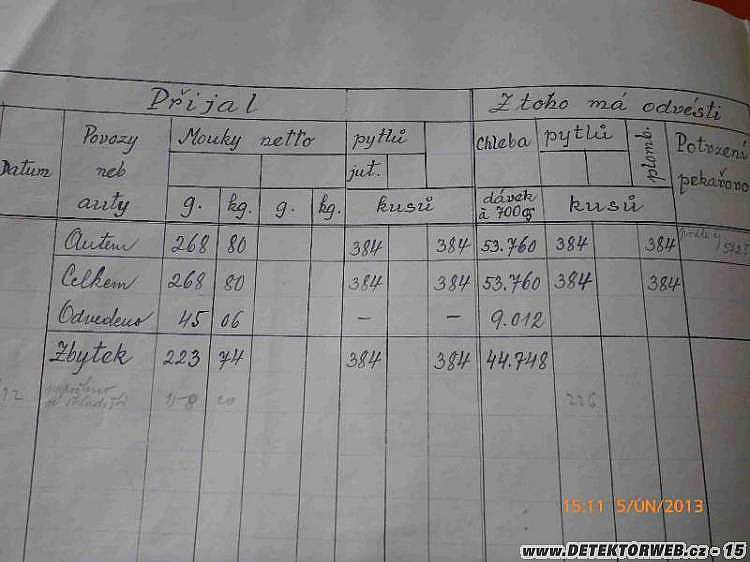 Přijal Z toho má odvésti
Datum Povozy neb auty Mouky netto pytlů Chleba pytlů plomb Potvrzení pekařovo
jut.
g. kg. g. kg. kusů dávek à 700 g kusů
Autem 268 80 384 384 53.760 384 384
Celkem 268 80 384 384 53.760 384 384
Odvedeno 45 06 – – 9.012
Zbytek 223 74 384 384 44.748
12 226
15:11 5/ÚN/2013
www.DETEKTORWEB.cz - 15